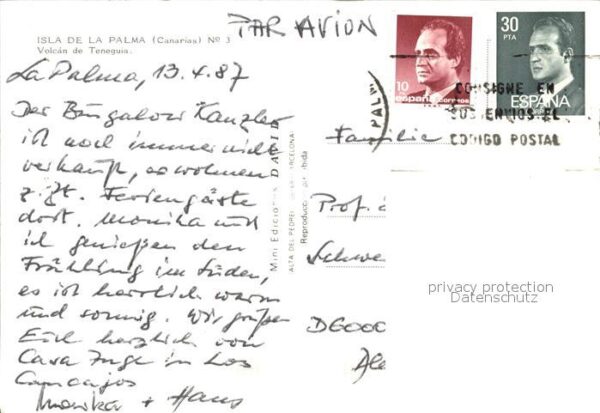 ISLA DE LA PALMA (Canarias) Nº 3
Volcán de Teneguia.
PAR AVION
La Palma, 13.4.87
Der Bungalow Kanzler
ist noch immer nicht
verkauft, es wohnen
z.Zt. Feriengäste
dort. Monika und
ich genießen den
Frühling im Süden,
es ist herrlich warm
und sonnig. Wir grüßen
Euch herzlich von
Casa Inge in Los
Cancajos
Monika + Hans
Mini Ediciones DAVID
ALTA DEL PEDREL BARCELONA
Reproducción prohibida
10
españa correos
30
PTA
ESPAÑA
PALM
CONSIGNE EN
SUS ENVIOS EL
CODIGO POSTAL
Familie
Prof.
Schwe
D6000
privacy protection
Datenschutz